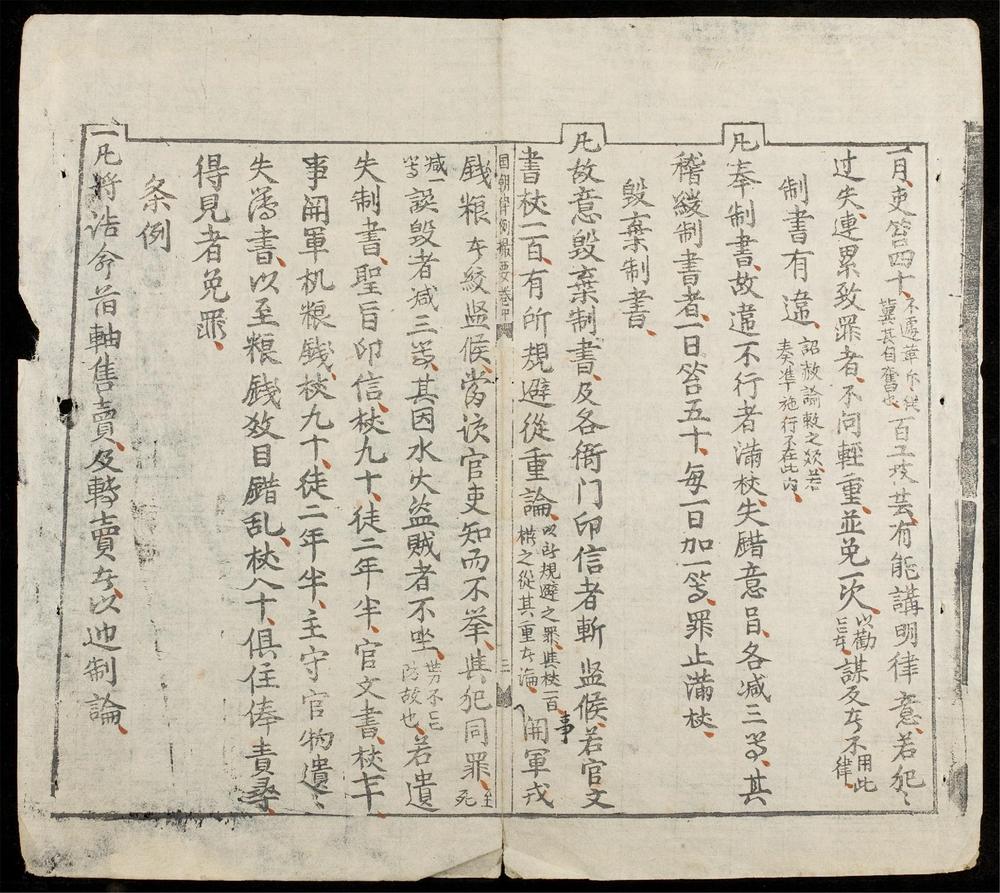 一月、吏笞四十、不遽革斥従冀其自奮也、百工技芸、有能講明律意、若犯、
过失、連累致罪者、不问輕重、並免一次、以勸謀反者不用此律、
制書有違、詔赦諭敕之類、若奏准施行、不在此内、
凡奉制書、故違不行者、満杖、失錯意旨、各减三等、其
稽緩制書者、一日笞五十、每一日加一等、罪止満杖、
毀棄制書、
凡故意毀棄制書、及各衙门印信者、斬监候、若官文
書杖一百、有所規避、從重論、以所規避之罪、與杖一百、横之從其重者論、事関軍戎
国朝律例撮要卷中 三
銭粮者、絞监候、當该官吏、知而不挙、與犯同罪、至死
减一等、誤毀者、减三等、其因水火盜賊者、不坐、防故也、若遺
失制書、聖旨、印信、杖九十、徒二年半、官文書、杖七十、
事関軍机粮銭、杖九十、徒二年半、主守官物、遺、
失簿書、以至粮銭数目錯乱、杖八十、俱住俸責尋、
得見者免罪、
条例
一凡将誥命首軸售賣、及轉賣者、以迚制論、